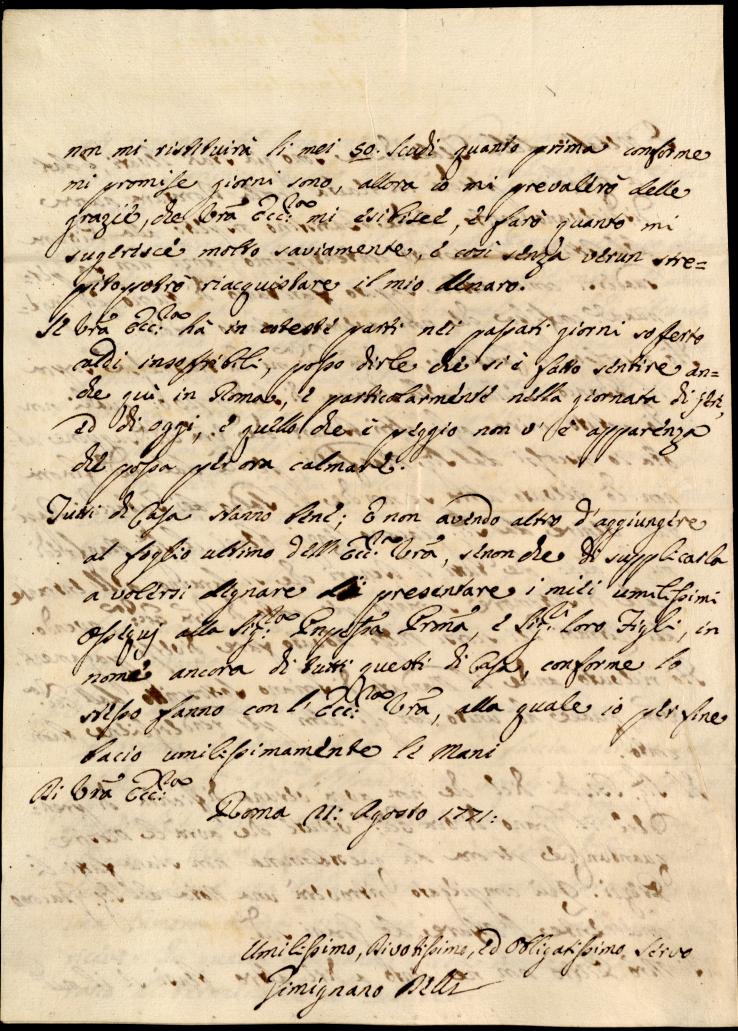 non mi ristituirà li miei 50. scudi quanto prima conforme
mi promise giorni sono, allora io mi prevalerò delle
grazie, che Vrã Ecc:za mi esibisce, e farò quanto mi
sugerisce molto saviamente, e così senza verun stre=
pito potrò riacquistare il mio denaro.
Se Vrã Ecc:za hà in coteste parti nei passati giorni sofferto
caldi insoffribili, posso dirle che si è fatto sentire an=
che quì in Roma, e particolarmente nella giornata di Jeri,
ed di oggi, e quello che è peggio non v'è apparenza
che possa per ora calmare.
Tutti di Casa stanno bene; E non avendo altro d'aggiungere
al foglio ultimo dell'Ecc:za Vrã, senonche di supplicarla
a volersi degnare di presentare i miei umilissimi
ossequj alla Sig:ra Prñã, e Sig:ri loro Figli, in
nome ancora di tutti questi di Casa, conforme lo
stesso fanno con l'Ecc:za Vrã, alla quale io per fine
bacio umilissimamente le Mani
Di Vrã Ecc:za
Roma 21: Agosto 1771:
Umilissimo, Divotissimo, ed Obbligatissimo Servo
Gimignano Belli